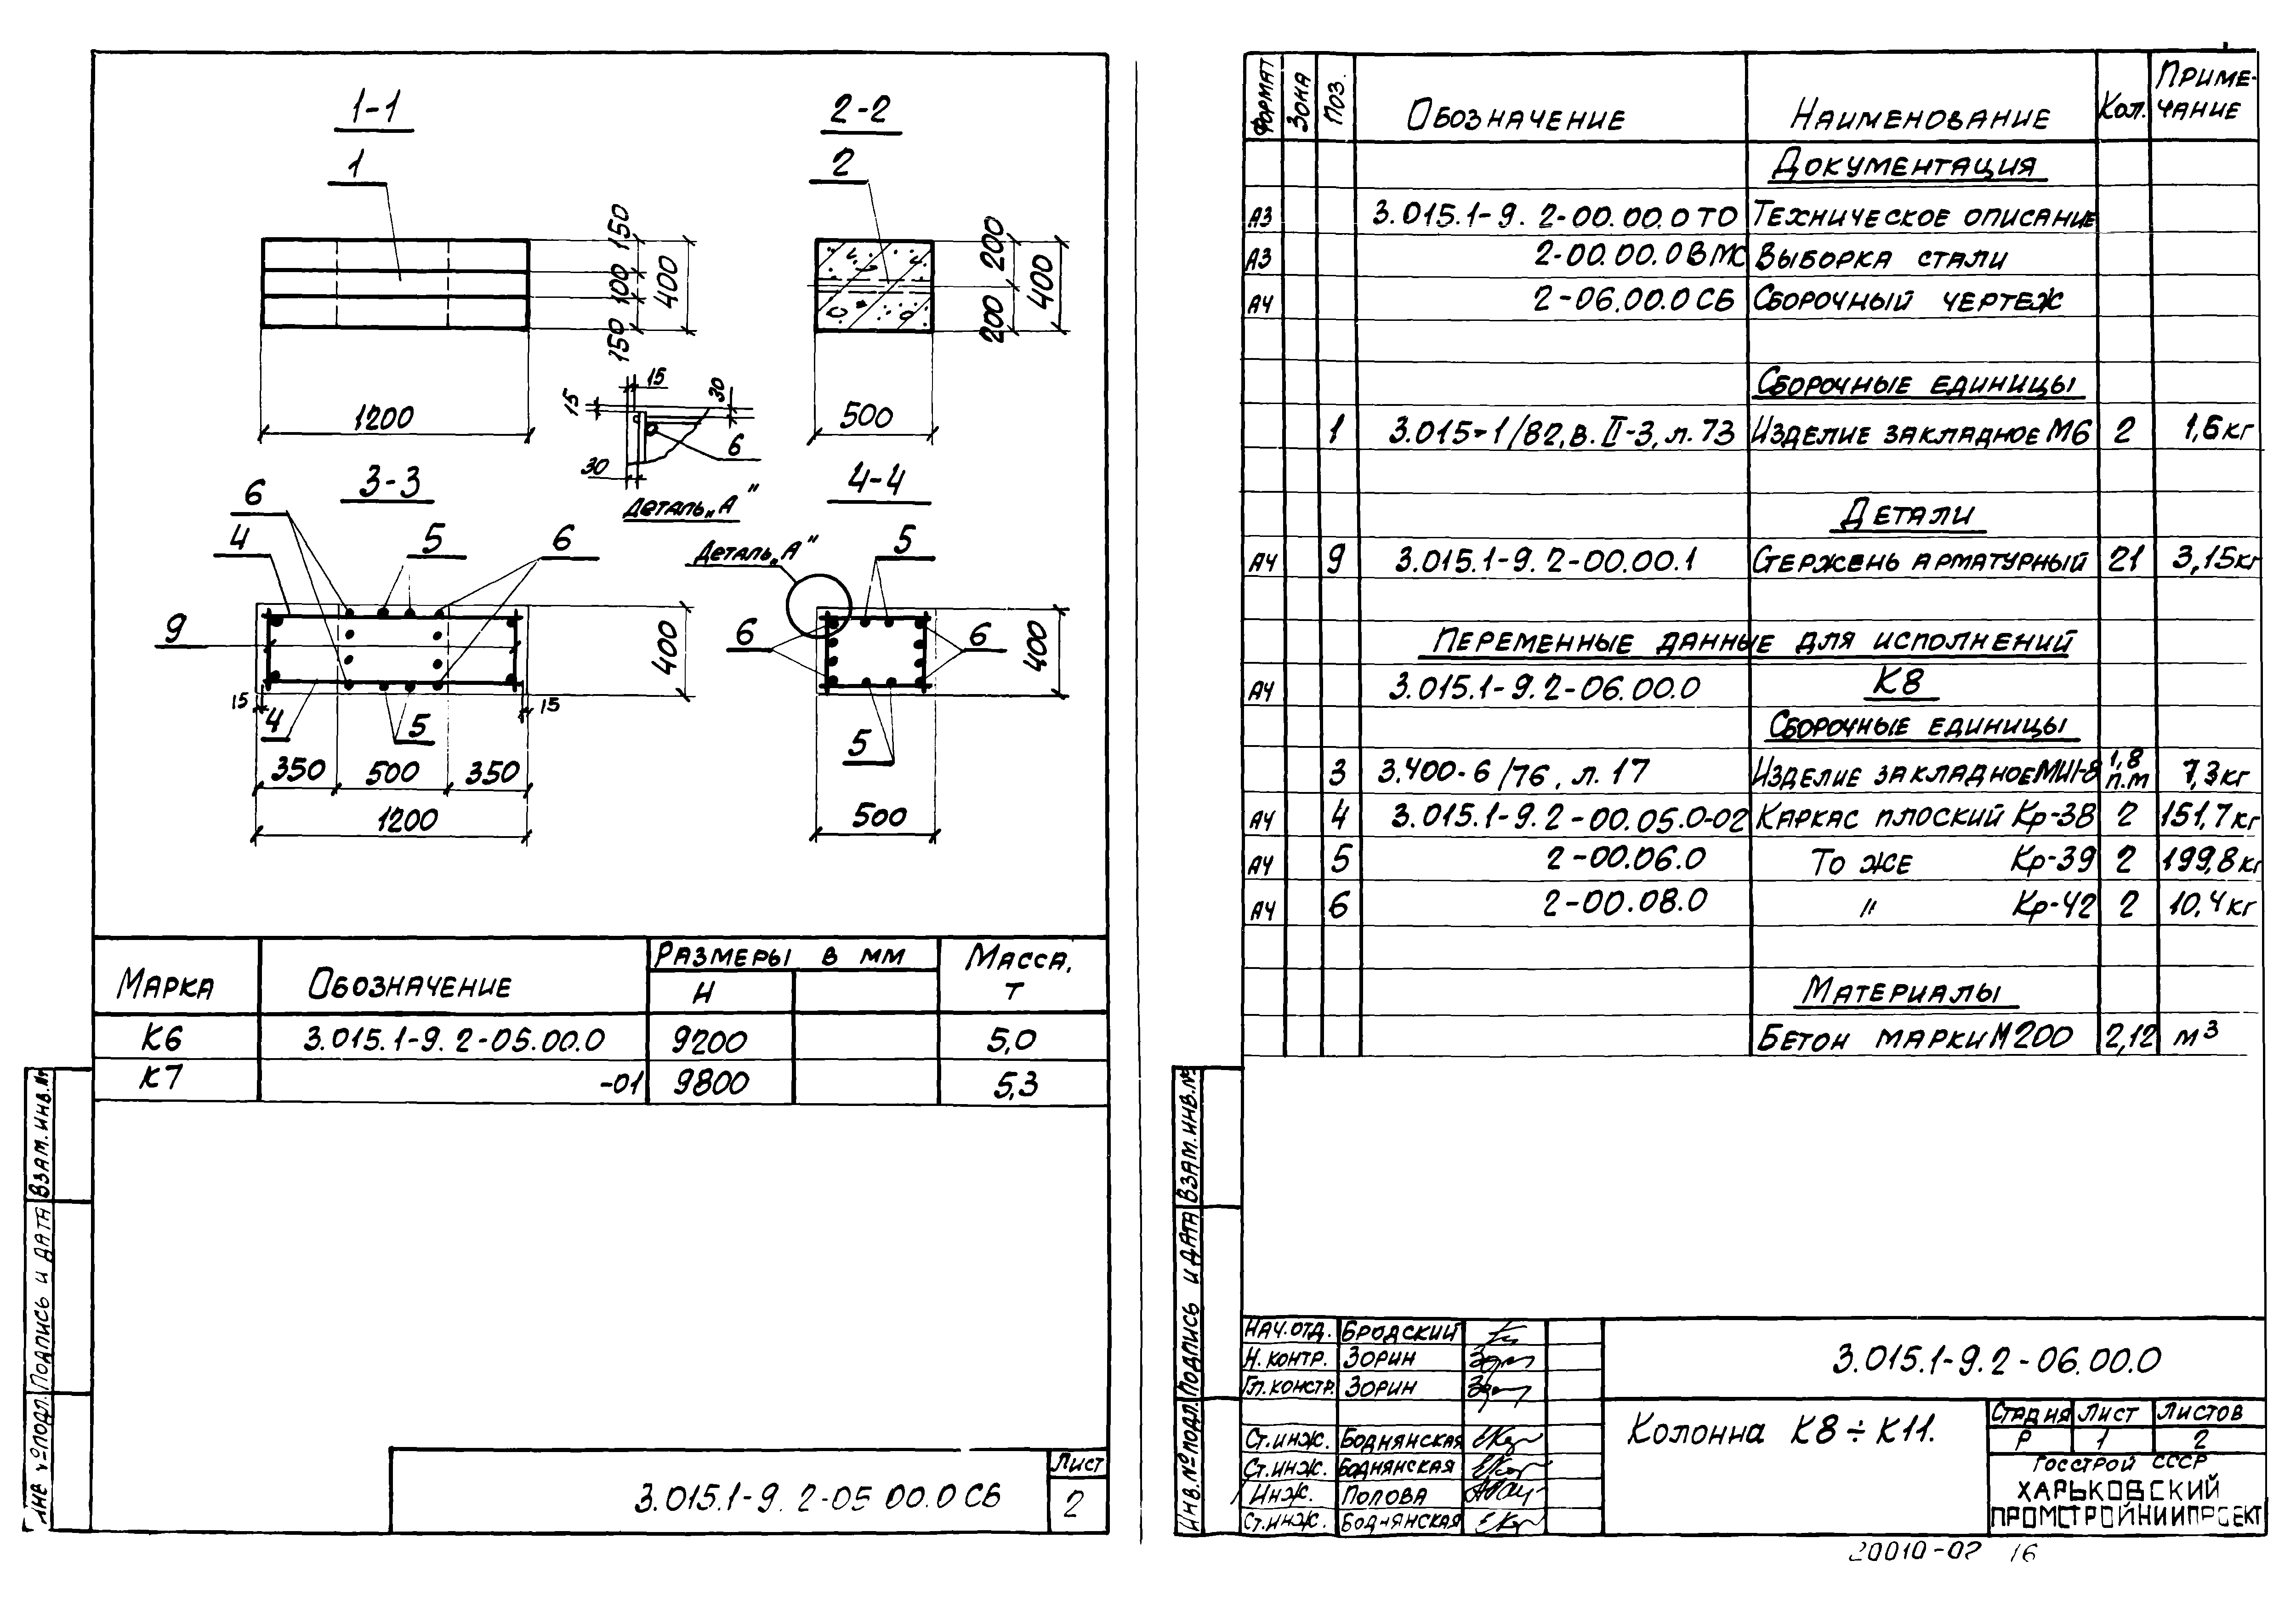 1-1
1
150
100
150
400
1200
2-2
2
200
200
400
500
15
15
30
30
6
Деталь „А"
3-3
6
4
5
6
9
4
5
15
15
400
350 500 350
1200
4-4
Деталь „А"
5
6
6
5
400
500
Марка Обозначение Размеры в мм Масса, т
H
К6 3.015.1-9.2-05.00.0 9200 5,0
К7 -01 9800 5,3
Взам. инв. №
Подпись и дата
Инв. № подл.
3.015.1-9.2-05 00.0 СБ
Лист
2
Формат Зона Поз. Обозначение Наименование Кол. Приме-
чание
Документация
А3 3.015.1-9.2-00.00.0 ТО Техническое описание
А3 2-00.00.0 ВМС Выборка стали
А4 2-06.00.0 СБ Сборочный чертеж
Сборочные единицы
1 3.015-1/82, в. II-3, л. 73 Изделие закладное М6 2 1,6 кг
Детали
А4 9 3.015.1-9.2-00.00.1 Стержень арматурный 21 3,15 кг
Переменные данные для исполнений
А4 3.015.1-9.2-06.00.0 К8
Сборочные единицы
3 3.400-6/76, л. 17 Изделие закладное МИ1-8 1,8 п.м 7,3 кг
А4 4 3.015.1-9.2-00.05.0-02 Каркас плоский Кр-38 2 151,7 кг
А4 5 2-00.06.0 То же Кр-39 2 199,8 кг
А4 6 2-00.08.0 " Кр-42 2 10,4 кг
Материалы
Бетон марки М200 2,12 м³
Взам. инв. №
Подпись и дата
Инв. № подл.
Нач. отд. Бродский
Н. контр. Зорин
Гл. констр. Зорин
Ст. инж. Боднянская
Ст. инж. Боднянская
Инж. Попова
Ст. инж. Боднянская
3.015.1-9.2-06.00.0
Колонна К8÷К11.
Стадия Лист Листов
Р 1 2
Госстрой СССР
Харьковский
Промстройниипроект
20010-02 16